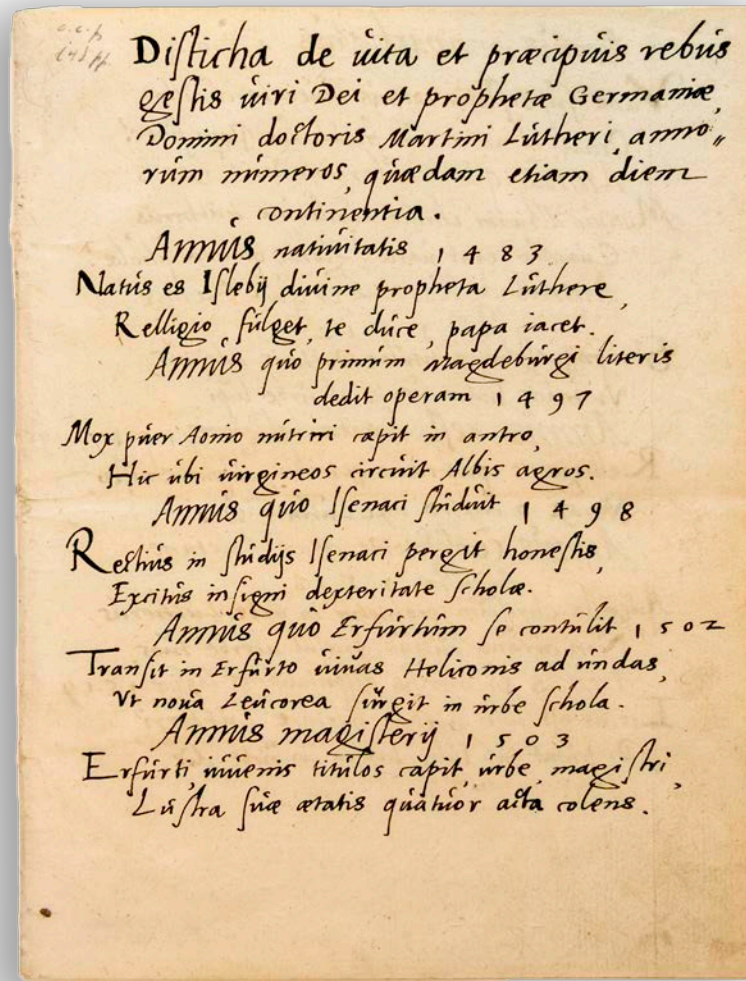 Disticha de uita et præcipuis rebus
gestis uiri Dei et prophetæ Germaniæ,
Domini doctoris Martini Lutheri, anno„
rum numeros, quædam etiam diem
continentia.
Annus natiuitatis 1483
Natus es Islebij diuine propheta Luthere,
Relligio fulget, te duce, papa iacet.
Annus quo primum Magdeburgi literis
dedit operam 1497
Mox puer Aonio nutriri cæpit in antro,
Hic ubi uirgineos circuit Albis agros.
Annus quo Isenaci studuit 1498
Rectius in studijs Isenaci pergit honestis,
Excitus insigni dexteritate scholæ.
Annus quo Erfurtum se contulit 1502
Transit in Erfurto uiuas Heliconis ad undas,
Vt noua Leucorea surgit in urbe schola.
Annus magisterij 1503
Erfurti, iuuenis titulos capit, urbe, magistri,
Lustra suæ ætatis quatuor acta colens.